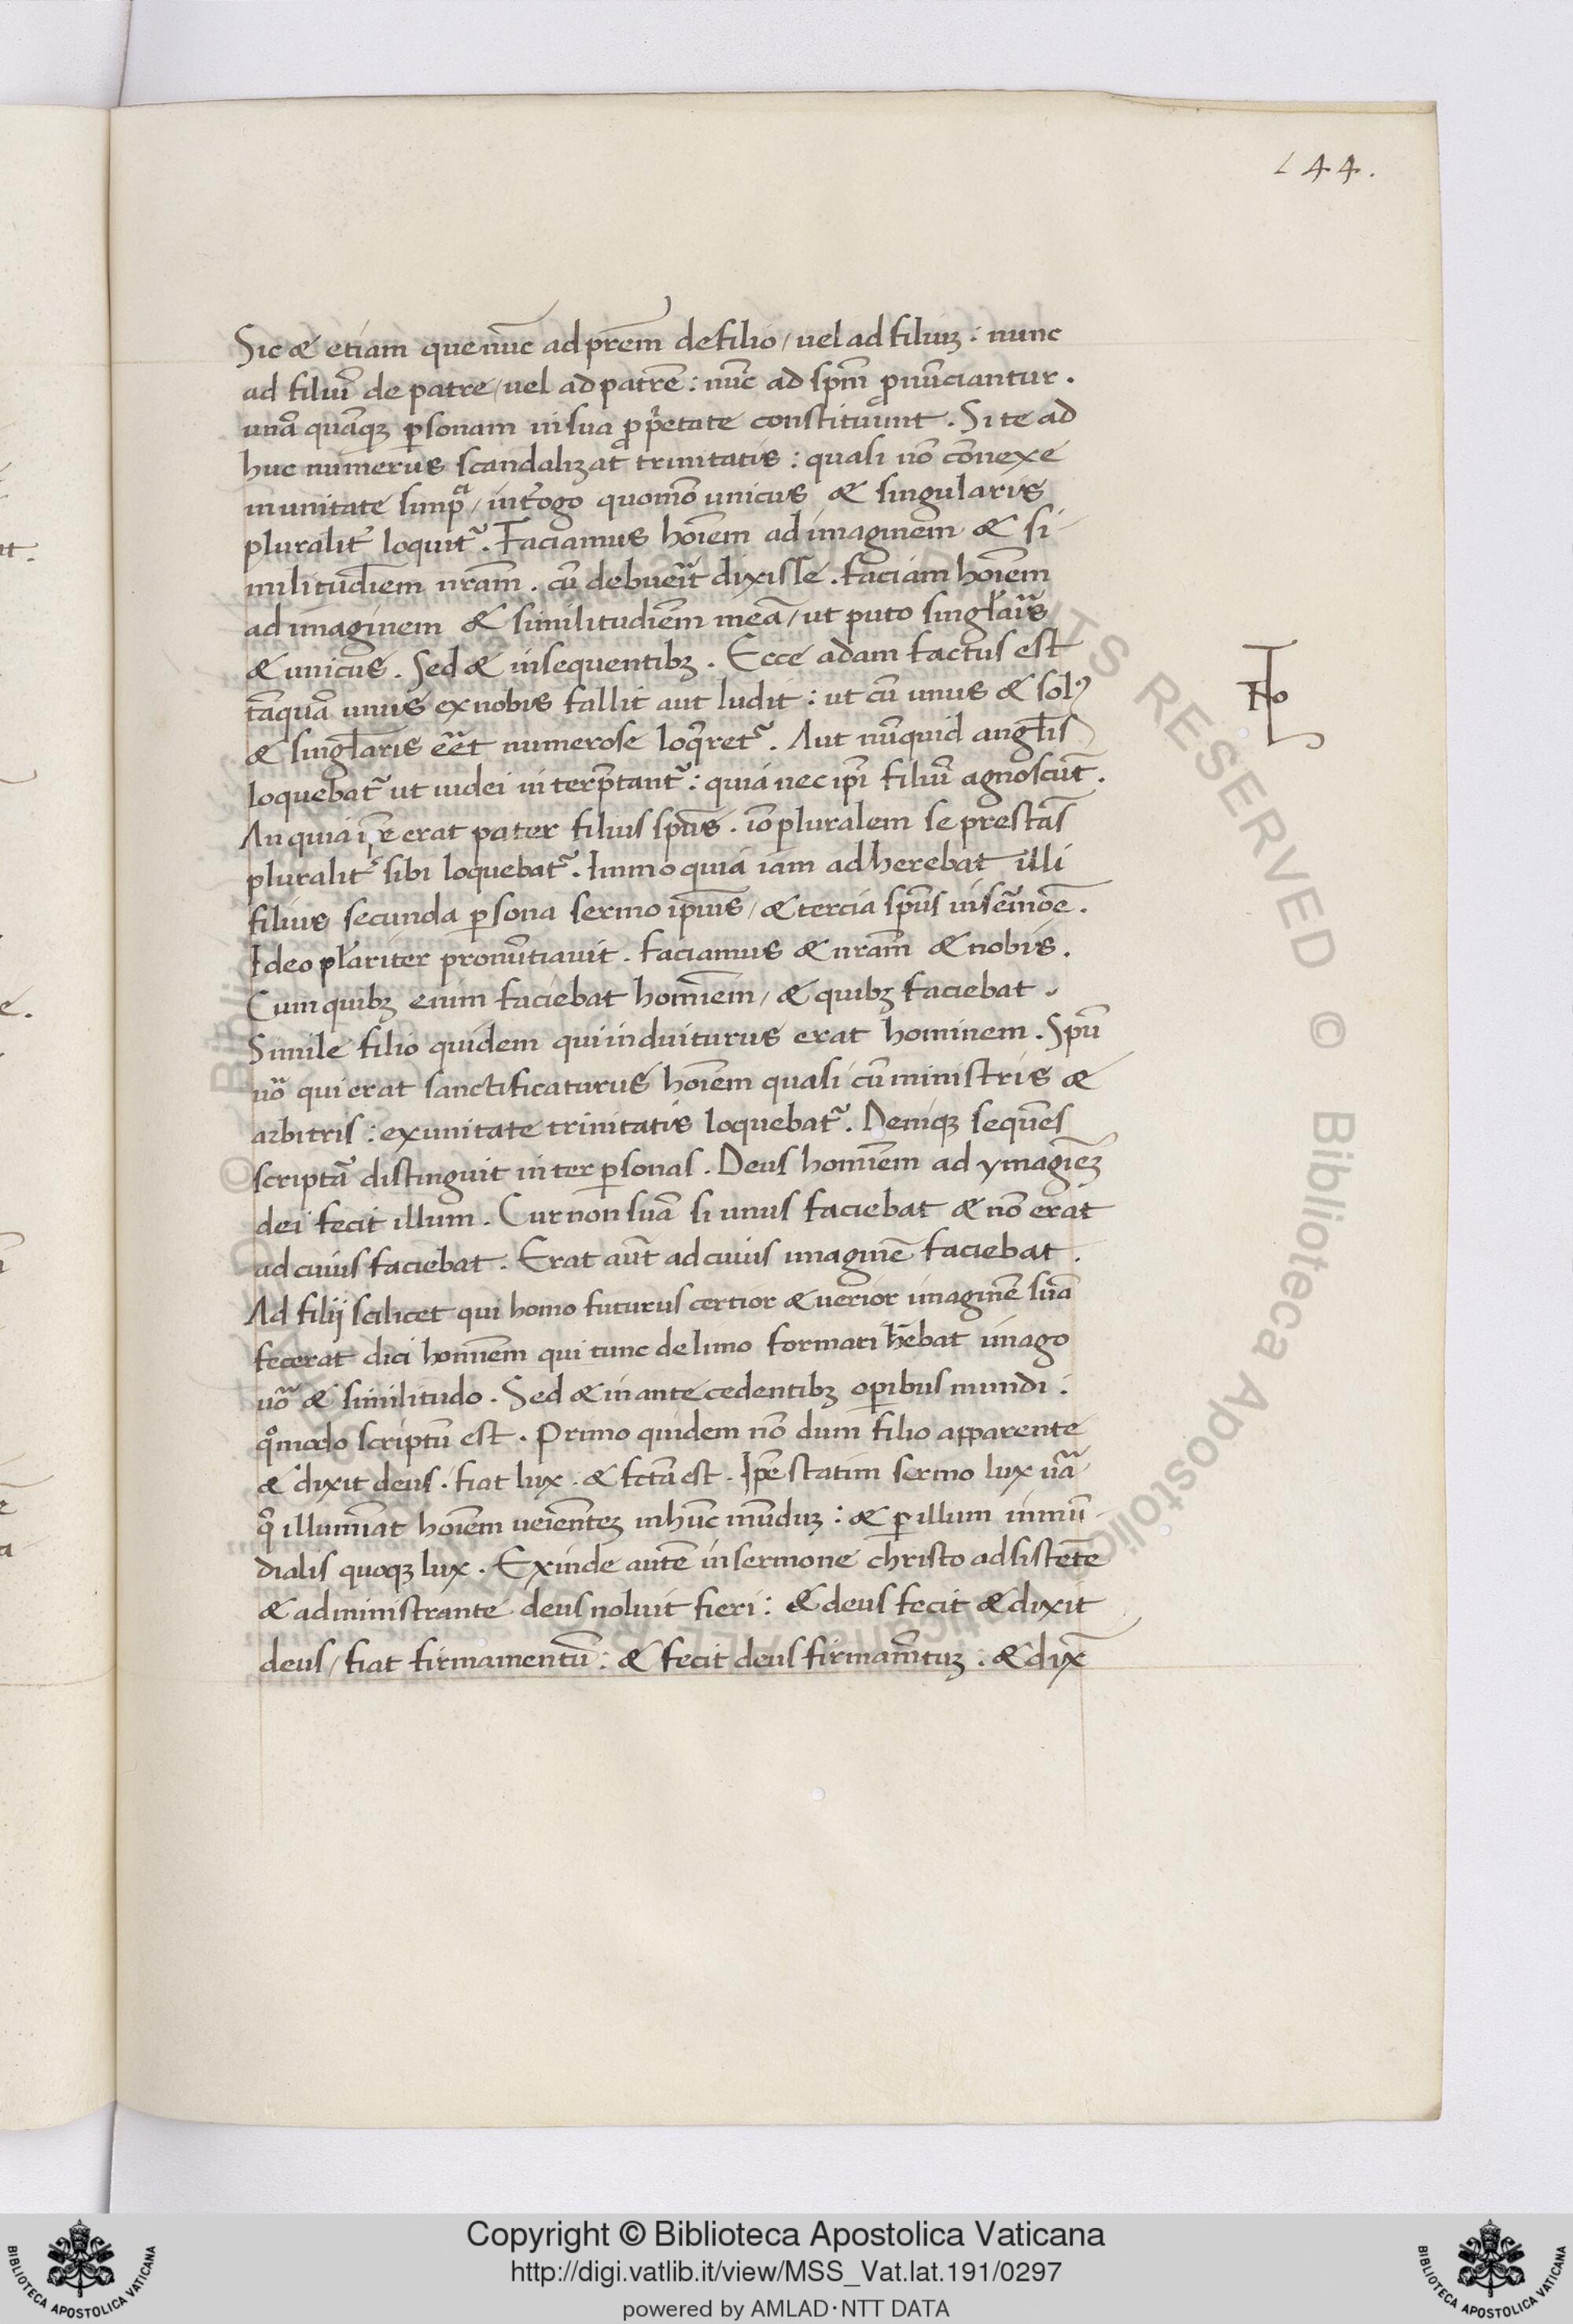 144.
Sic & etiam que nũc ad prẽm de filio / uel ad filiuꝫ : nunc
ad filiũ de patre / uel ad patrẽ : nũc ad spm̃ ꝓnũciantur .
unã quãqꝫ ꝑsonam in sua ꝓprietate constituunt . Si te ad
huc numerus scandalizat trinitatis : quasi nõ cõnexe
in unitate simpͣ / interrogo quomõ unicus & singularis
pluralit̃ loquit᷑ . Faciamus hoĩem ad imaginem & si-
militudĩem nr̃am . cũ debuerit dixisse . faciam hoĩem
ad imaginem & similitudĩem meã / ut puto singłaris
& unicus . Sed & in sequentibꝫ . Ecce adam factus est
tãquã unus ex nobis fallit aut ludit : ut cũ unus & solꝰ
& singłaris eẽt numerose loqueret᷑ . Aut nũquid angłis
loquebat᷑ ut iudei interpr̃tant᷑ : quia nec ip̃i filiũ agnoscũt .
An quia ip̃e erat pater filius spũs . iõ pluralem se prestãs
pluralit̃ sibi loquebat᷑ . Immo quia iam adherebat illi
filius secunda ꝑsona sermo ip̃ius / & tercia spũs in sermõe .
Ideo płariter pronũtiavit . faciamus & nr̃am & nobis .
Cum quibꝫ enim faciebat homĩem / & quibꝫ faciebat .
Simile filio quidem qui induiturus erat hominem . Spũ
uõ qui erat sanctificaturus hoĩem quasi cũ ministris &
arbitris : ex unitate trinitatis loquebat᷑ . Deniqꝫ sequẽs
scriptã distinguit inter ꝑsonas . Deus homĩem ad ymagiẽꝫ
dei fecit illum . Cur non suã si unus faciebat & nõ erat
ad cuius faciebat . Erat aũt ad cuius imaginẽ faciebat .
Ad filij scilicet qui homo futurus certior & uerior imaginẽ suã
fecerat dici homĩem qui tunc de limo formari hẽbat imago
uõ & similitudo . Sed & in antecedentibꝫ oꝑibus mundi .
qͦmodo scriptũ est . Primo quidem nõ dum filio apparente
& dixit deus . fiat lux . & fctã est . Ip̃e statim sermo lux uã
q̃ illumĩat hoĩem ueiẽnteꝫ in hũc mũduꝫ : & ꝑ illum in mũ-
dialis quoqꝫ lux . Exinde autẽ in sermone christo adsistẽte
& administrante deus noluit fieri : & deus fecit & dixit
deus / fiat firmamentũ : & fecit deus firmam̃tuꝫ : & dix̃
© Biblioteca Apostolica Vaticana ALL RIGHTS RESERVED © Biblioteca Apostolica
Copyright © Biblioteca Apostolica Vaticana
http://digi.vatlib.it/view/MSS_Vat.lat.191/0297
powered by AMLAD·NTT DATA
BIBLIOTECA APOSTOLICA VATICANA
BIBLIOTECA APOSTOLICA VATICANA